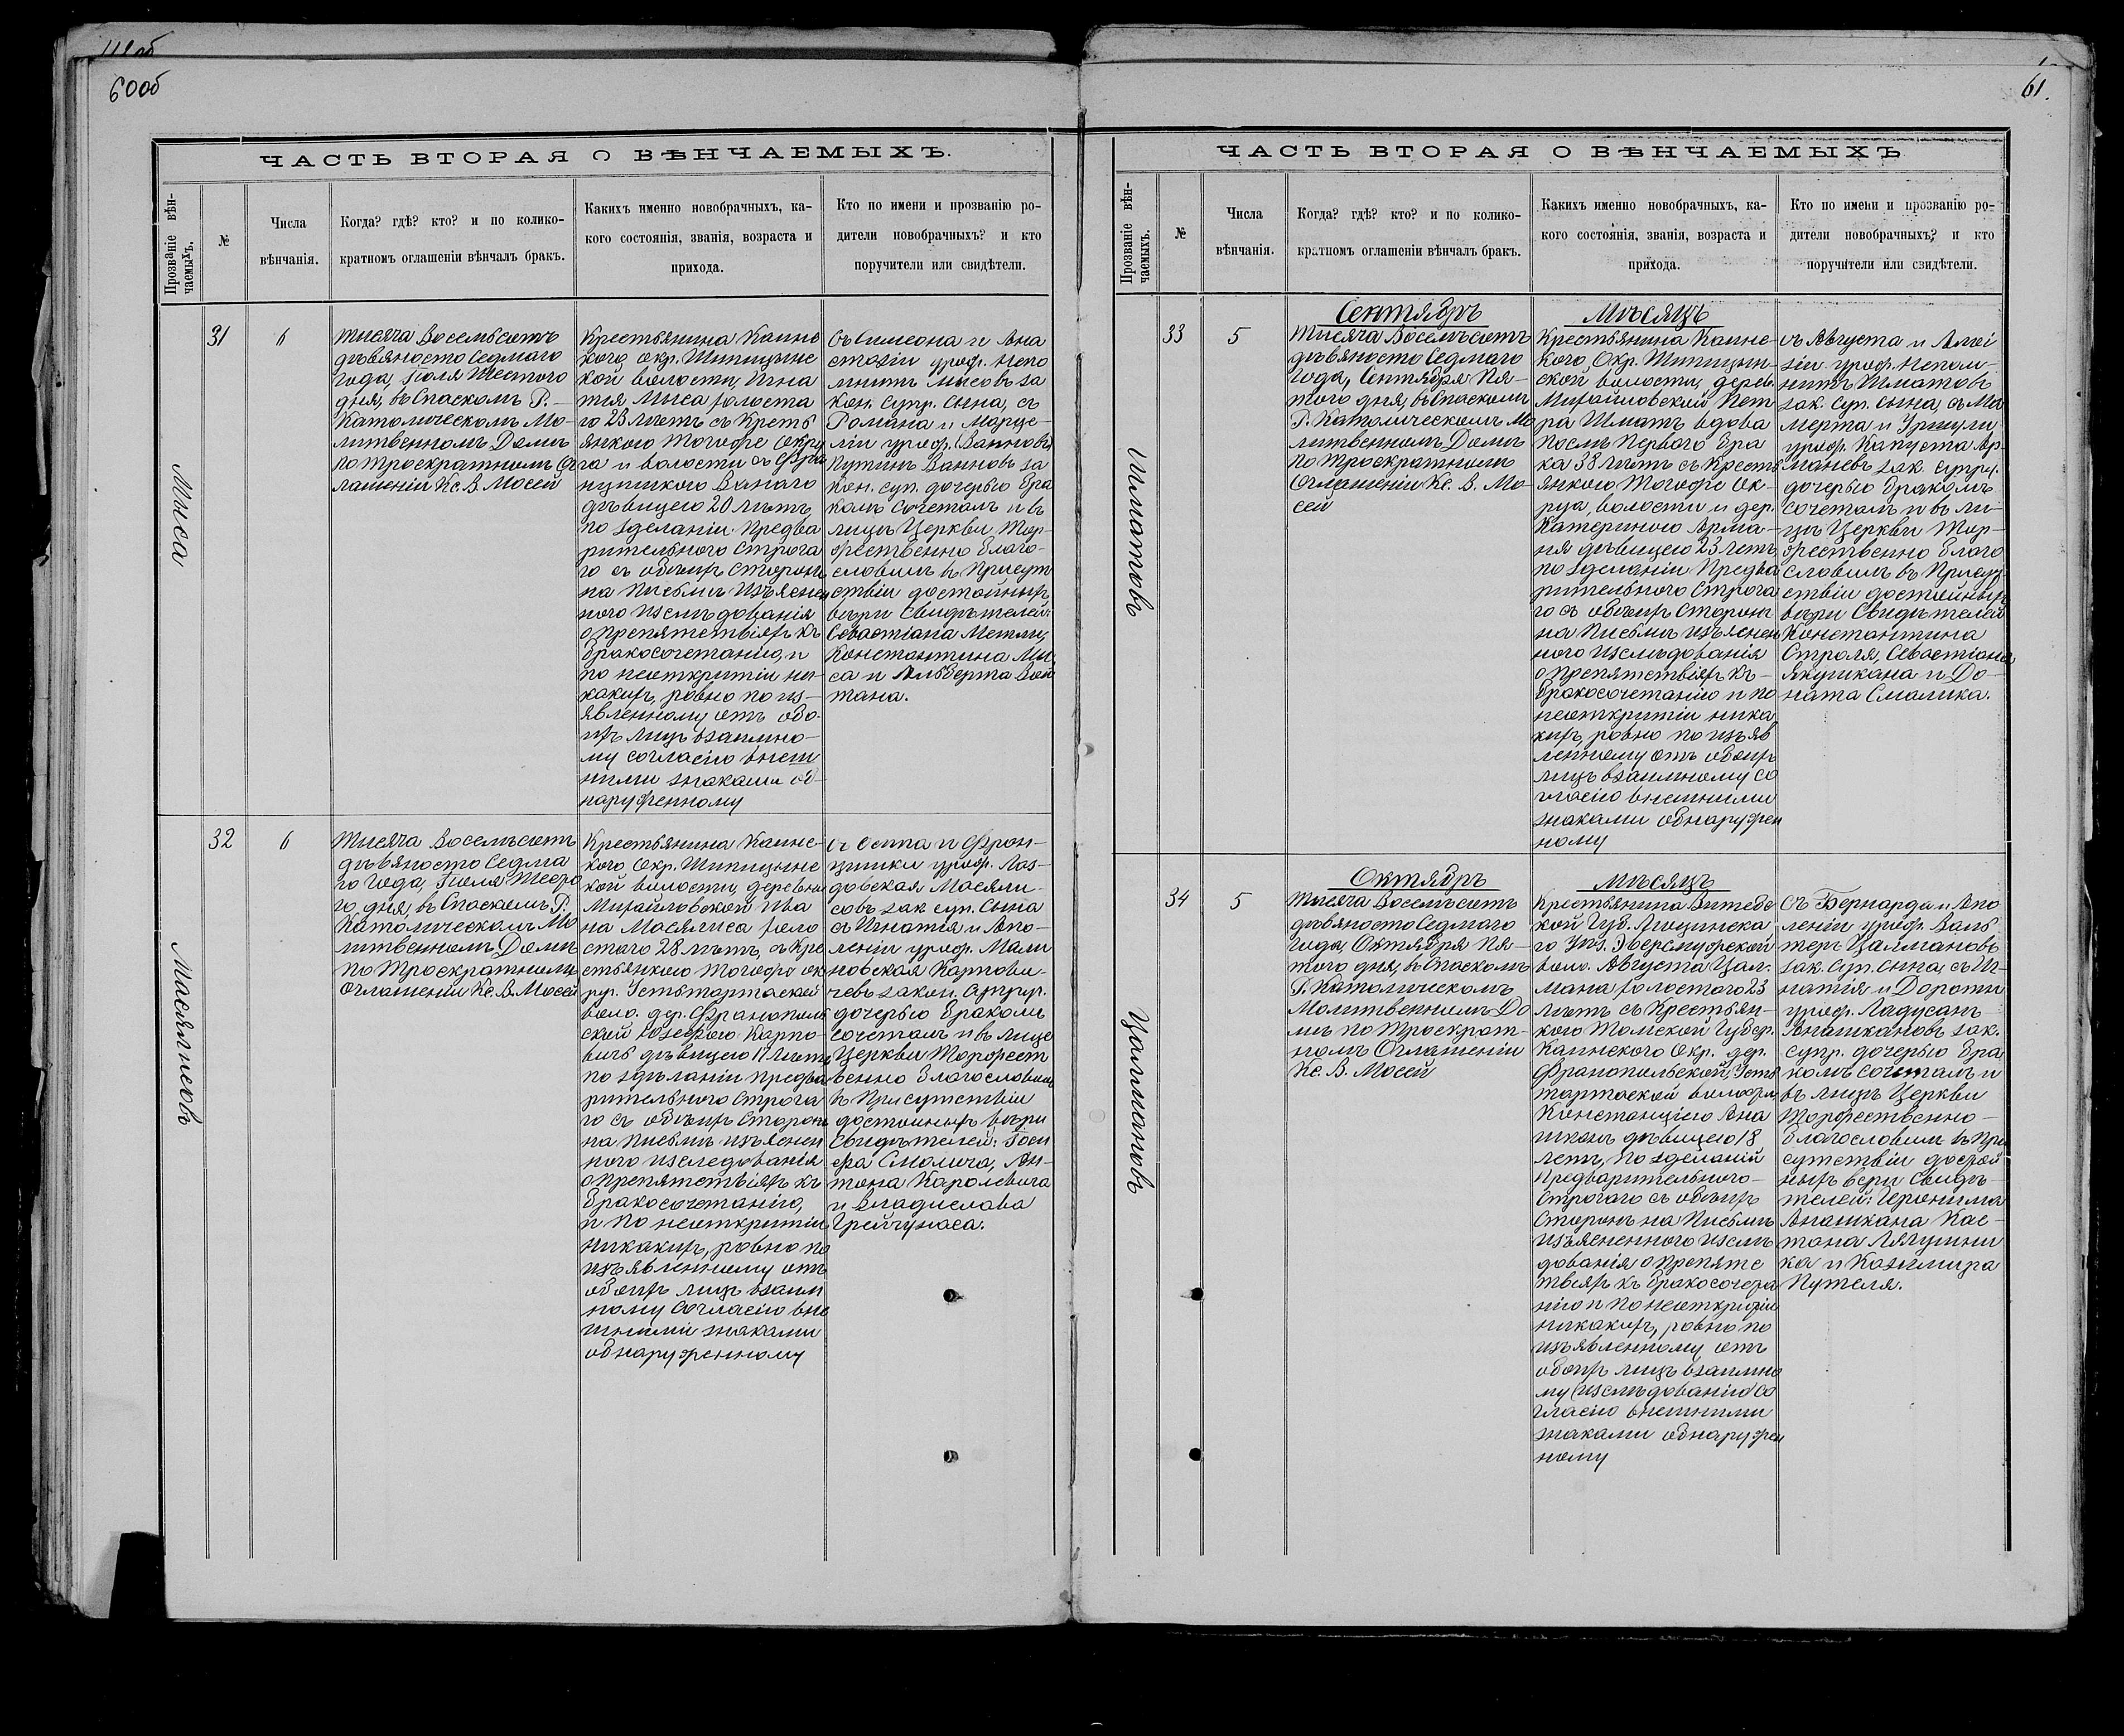 60об
ЧАСТЬ ВТОРАЯ О ВѢНЧАЕМЫХЪ.
Прозваніе вѣн-
чаемыхъ.
№
Числа
вѣнчанія.
Когда? гдѣ? кто? и по колико-
кратномъ оглашеніи вѣнчалъ бракъ.
Какихъ именно новобрачныхъ, ка-
кого состоянія, званія, возраста и
прихода.
Кто по имени и прозванію ро-
дители новобрачныхъ? и кто
поручители или свидѣтели.
Мыса
31
6
Тысяча Восемьсотъ
дѣвяносто Седмаго
года, Іюля Шестого
дня, въ Спаскомъ Р.-
Католическомъ Мо-
литвенномъ Домѣ
по Троекратномъ Ог
лашеніи Кс. В. Мосей
Крестьянина Каинс
кого окр. Шипицинс
кой волости, Игна
тія Мыса холоста
го 23 лѣтъ съ Кресть
янкою Тогоже Окру
га и волости съ Фра
нцишкого Ваного
дѣвицею 20 лѣтъ
по зделаніи Предва
рительного Строга
го съ обѣихъ Сторонъ
на Письмѣ Изъяснен
ного Изслѣдованія
о препятствіяхъ къ
бракосочетанію, и
по неоткрытіи ни-
какихъ, ровно по из-
явленному отъ обо-
ихъ лицъ взаимно-
му согласію внеш
ними знаками об-
наруженному
Съ Симеона и Ана
стазіи урож. Непо
мнитъ Мысовъ за
кон. Супр. Сына, съ
Романа и Марце-
ліи урож. (Ванновъ)
Путинъ Ванновъ за
кон. суп. дочерью бра
комъ Сочеталъ и въ
лицѣ Церкви Тор-
жественно благо-
словилъ въ Присут
ствіи достойныхъ
вѣры Свидѣтелей:
Севастіана Метлы,
Константина Мы
са и Альберта Вой
тана.
Масялисовъ
32
6
Тысяча Восемьсотъ
дѣвяносто Седма
го года, Іюля Шесто
го дня, въ Спаскомъ Р.
Католическомъ Мо
литвенномъ Домѣ
по Троекратномъ
Оглашеніи Кс. В. Мосей
Крестьянина Каинс-
кого Окр. Шипицинс
кой волости, деревни
Михайловской Ива
на Масялиса холо
стого 28 лѣтъ, съ Кре
стьянкою Тогоже ок
руг. Устьтартаской
воло. дер. Франополь
ской Юзефою Карпо
вичъ дѣвицею 17 лѣтъ
по здѣланіи предва
рительного Строга
го съ обѣихъ Сторонъ
на письмѣ изъяснен
ного изследованія
о препятствіяхъ къ
бракосочетанію,
и по неоткрытіи
никакихъ, ровно по
изъявленному отъ
обоихъ лицъ взаим
ному согласію вне
шними знаками
обнаруженному
съ Осипа и Фран-
цишки урож. Лаз-
довская Масяли-
совъ зак суп. Сына
съ Игнатія и Апо-
леніи урож. Мали
новская Карпови-
чевъ закон. Супруг.
дочерью бракомъ
сочеталъ и въ лице
Церкви Торжест
венно благословилъ
въ Присутствіи
достойныхъ вѣры
Свидѣтелей: Іоси
фа Смолича, Ан-
тона Каролевича
и Владислава
Грейчунаса.
61.
ЧАСТЬ ВТОРАЯ О ВѢНЧАЕМЫХЪ
Прозваніе вѣн-
чаемыхъ.
№
Числа
вѣнчанія.
Когда? гдѣ? кто? и по колико-
кратномъ оглашеніи вѣнчалъ бракъ.
Какихъ именно новобрачныхъ, ка-
кого состоянія, званія, возраста и
прихода.
Кто по имени и прозванію ро-
дители новобрачныхъ? и кто
поручители или свидѣтели.
Сентябрь Мѣсяцъ
Шматовъ
33
5
Тысяча Восемьсотъ
дѣвяносто Седмаго
года, Сентября Пя-
того дня, въ Спаскомъ
Р. Католическомъ Мо
литвенномъ Домѣ
по Троекратномъ
Оглашеніи Кс. В. Мо-
сей
Крестьянина Каинс-
кого Окр. Шипицин-
ской волости, дерев.
Михайловской Пет
ра Шматъ вдова
послѣ Первого бра
ка 38 лѣтъ съ Кресть
янкою Тогоже Ок-
руга, волости и дер.
Катериною Арма-
ня дѣвицею 23 летъ
по зделаніи Предва
рительного Строга
го съ обѣихъ Сторонъ
на Письмѣ изъяснен
ного изслѣдованія
о препятствіяхъ къ-
бракосочетанію и по
неоткрытіи ника
кихъ, ровно по изъяв
ленному отъ обоихъ
лицъ взаимному со
гласію внешними
знаками обнаружен
ному
съ Августа и Алоі
зіи урож. Непом-
нитъ Шматовъ
зак. суп. сына, съ Ма
мерта и Уршули
урож. Капуста Ар-
маневъ зак. супру.
дочерью бракомъ
сочеталъ и въ ли-
цѣ Церкви Тор-
жественно благо
словилъ въ Присут
ствіи достойныхъ
вѣры Свидѣтелей
Константина
Строля, Севастіана
Якушкана и До-
ната Смалика.
Октябрь Мѣсяцъ
Цалмановъ
34
5
Тысяча Восемьсотъ
дѣвяносто Седмаго
года, Октября Пя-
того дня, въ Спаскомъ
Р. Католическомъ
Молитвенномъ До
мѣ по Троекрат-
номъ Оглашеніи
Кс. В. Мосей
Крестьянина Витебс
кой Губ. Люцинска
го Уѣз. Эверсмужской
воло. Августа Цал-
мана холостого 23
лѣтъ съ Крестьян-
кою Томской Губер.
Каинского Окр. дер.
Франопольской, Усть
тартаской волости
Констанціею Ана
шкан дѣвицею 18
летъ, по зделаній
предварительного-
Строгаго съ обѣихъ
Сторонъ на Письмѣ
изъясненного изслѣ
дованія о препятс
твіяхъ къ бракосочета
нію и по неоткрытіи
никакихъ, ровно по
изъявленному отъ
обоихъ лицъ взаимно
му (изслѣдованію) со
гласію внешними
знаками обнаружен
ному
Съ Бернарда и Апо
леніи урож. Валь
теръ Цалмановъ
зак. Суп. сына, съ Иг-
натія и Дороты
урож. Ладусанъ
Анашкановъ зак.
супр. дочерью бра
комъ сочеталъ и
въ лицѣ Церкви
Торжественно-
благословилъ въ При
сутствіи достой
ныхъ вѣры Свидѣ-
телей: Іеронима
Анашкана Кас-
тона Лягушни
ка и Казимира
Путеля.